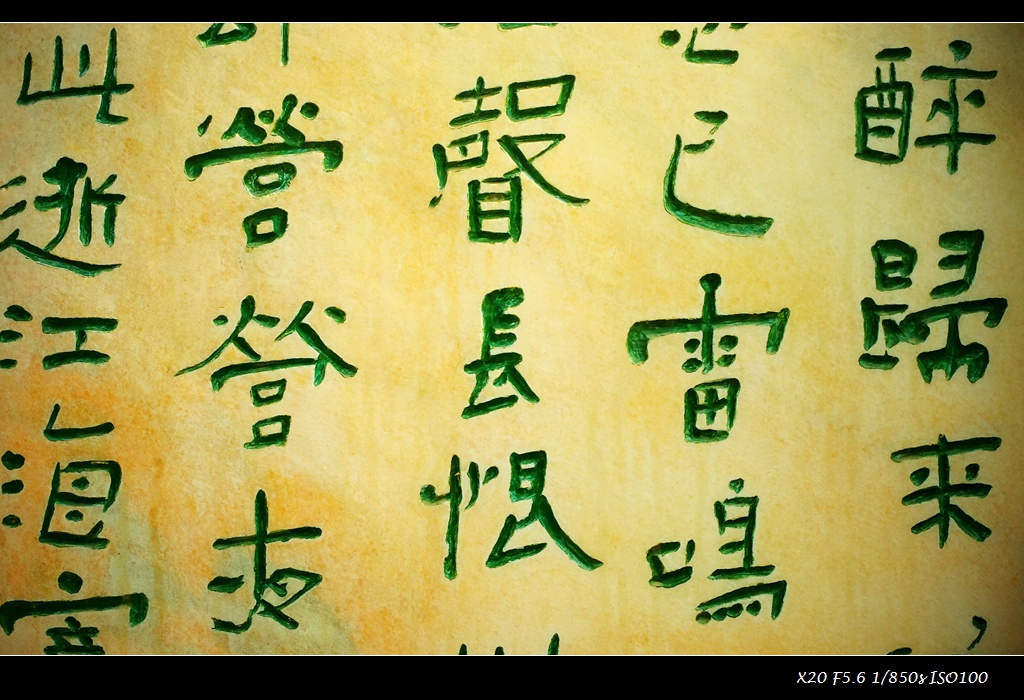 醉歸來,
已雷鳴
聲長恨
營營夜
此逝江海寄
X20 F5.6 1/850s ISO100